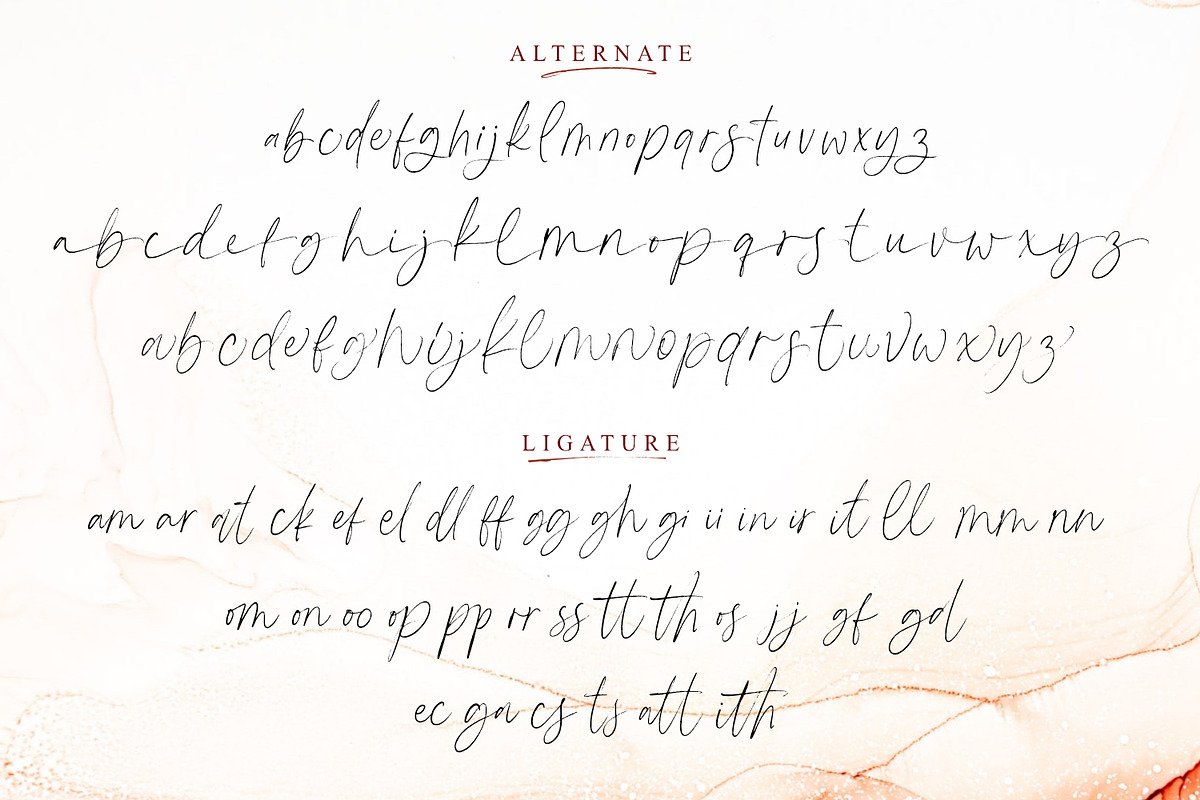 ALTERNATE
abcdefghijklmnopqrstuvwxyz
abcdefghijklmnopqrstuvwxyz
abcdefghijklmnopqrstuvwxyz
LIGATURE
am ar at ck ef el dl ff gg gh gi ii in ir it ll mm nn
om on oo op pp rr ss tt th os jj gf gd
ec ga cs ts att ith